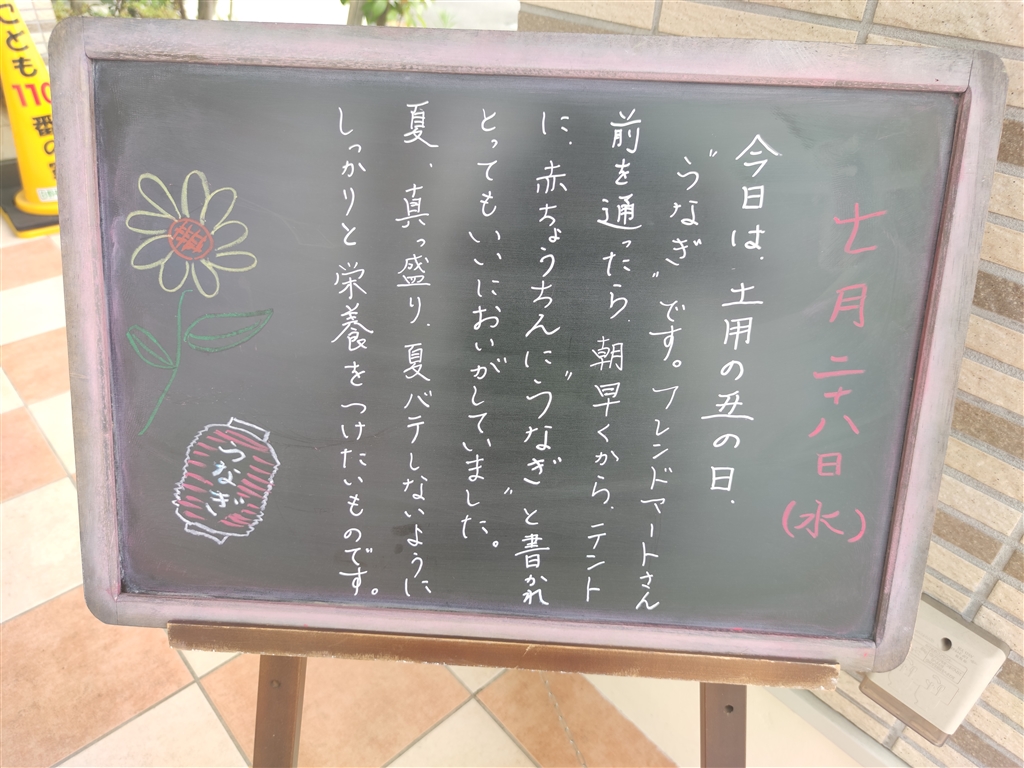 七月二十八日(水)
今日は、土用の丑の日、
"うなぎ"です。フレンドマートさん
前を通ったら、朝早くから、テント
に、赤ちょうちんに"うなぎ"と書かれ
とってもいいにおいがしていました。
夏、真っ盛り、夏バテしないように
しっかりと栄養をつけたいものです。
うなぎ
こども
110
番の